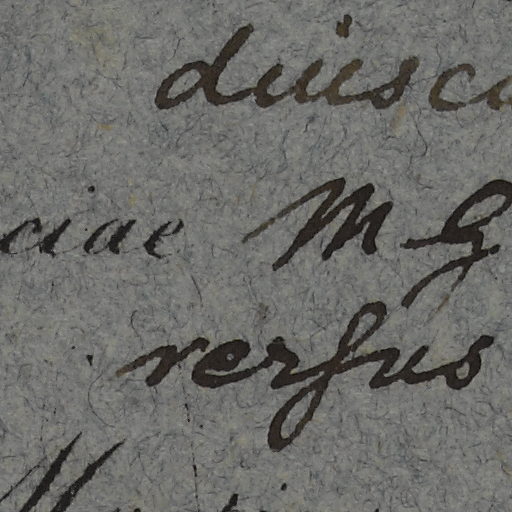 duisc
ciae M G
versus